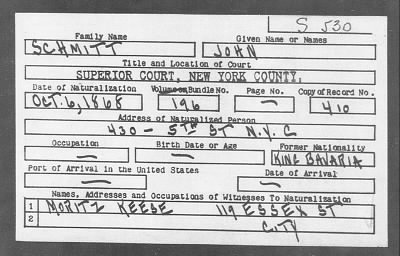 S 530
Family Name Given Name or Names
SCHMITT JOHN
Title and Location of Court
SUPERIOR COURT, NEW YORK COUNTY.
Date of Naturalization Volume or Bundle No. Page No. Copy of Record No.
OCT. 6, 1868 196 — 410
Address of Naturalized Person
430 - 5TH ST N.Y.C
Occupation Birth Date or Age Former Nationality
— — KING BAVARIA
Port of Arrival in the United States Date of Arrival
— —
Names, Addresses and Occupations of Witnesses To Naturalization
1 MORITZ KEESE 119 ESSEX ST
2 CITY